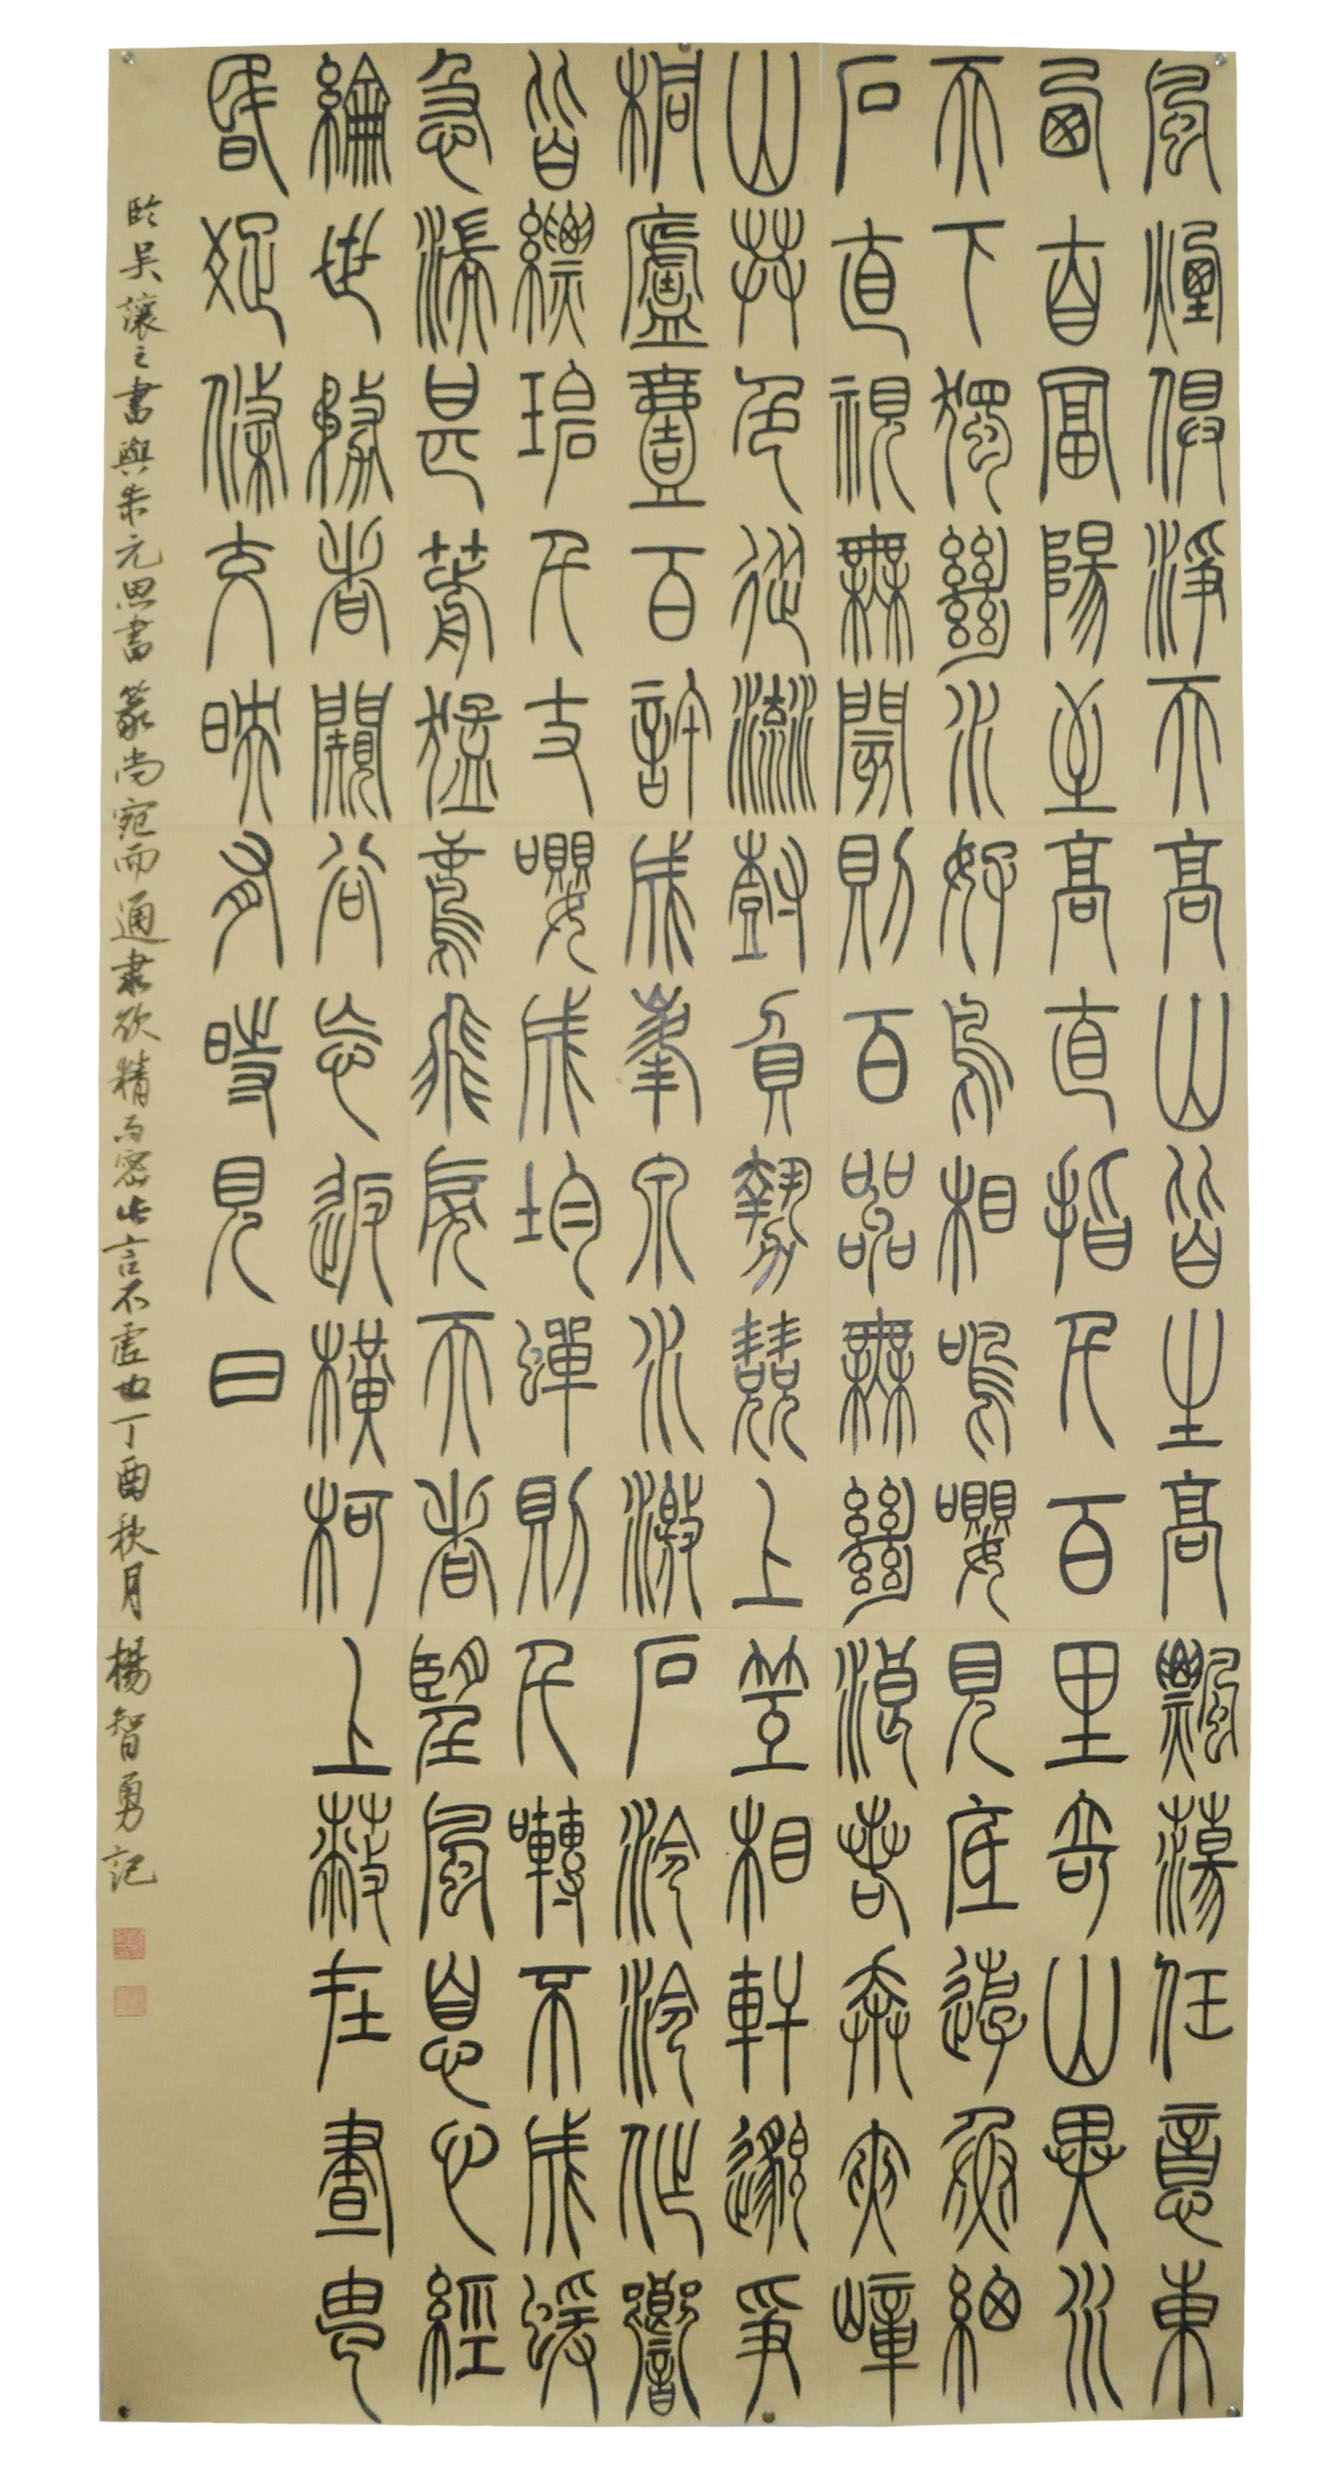 風煙俱淨天高山皆生高飄蕩任意東
西自富陽至高直指千百里奇山異水
天下獨絕水好鳥相鳴嚶見底游魚細
石直視無閡則百嘂無絕浪若奔夾嶂
山共色從流樹負勢競上互相軒邈爭
桐廬壹百許成峯泉水激石泠泠作響
皆縹碧千丈嚶成均蟬則千囀不成蝯
急湍甚箭猛鳶飛戾天者望風息心經
綸世務者闚谷忘返橫柯上蔽在晝
昏疏條交映有時見日
臨吳讓之書與朱元思書篆尚宛而通隸欲精而密此言不虛也丁酉秋月楊智勇記